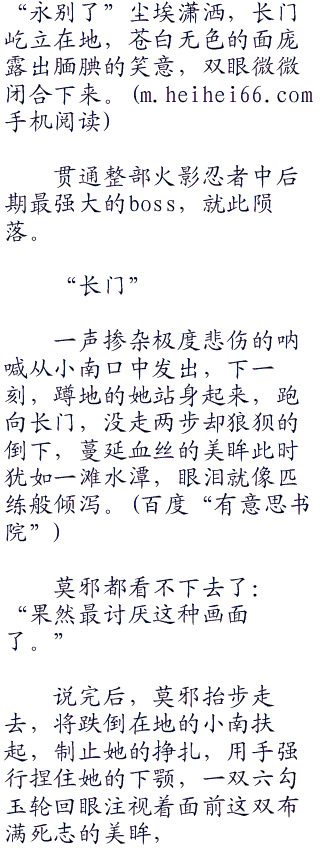 “永别了”尘埃潇洒，长门
屹立在地，苍白无色的面庞
露出腼腆的笑意，双眼微微
闭合下来。(m.heihei66.com
手机阅读)
贯通整部火影忍者中后
期最强大的boss，就此陨
落。
“长门”
一声掺杂极度悲伤的呐
喊从小南口中发出，下一
刻，蹲地的她站身起来，跑
向长门，没走两步却狼狈的
倒下，蔓延血丝的美眸此时
犹如一滩水潭，眼泪就像匹
练般倾泻。(百度“有意思书
院”)
莫邪都看不下去了：
“果然最讨厌这种画面
了。”
说完后，莫邪抬步走
去，将跌倒在地的小南扶
起，制止她的挣扎，用手强
行捏住她的下颚，一双六勾
玉轮回眼注视着面前这双布
满死志的美眸，